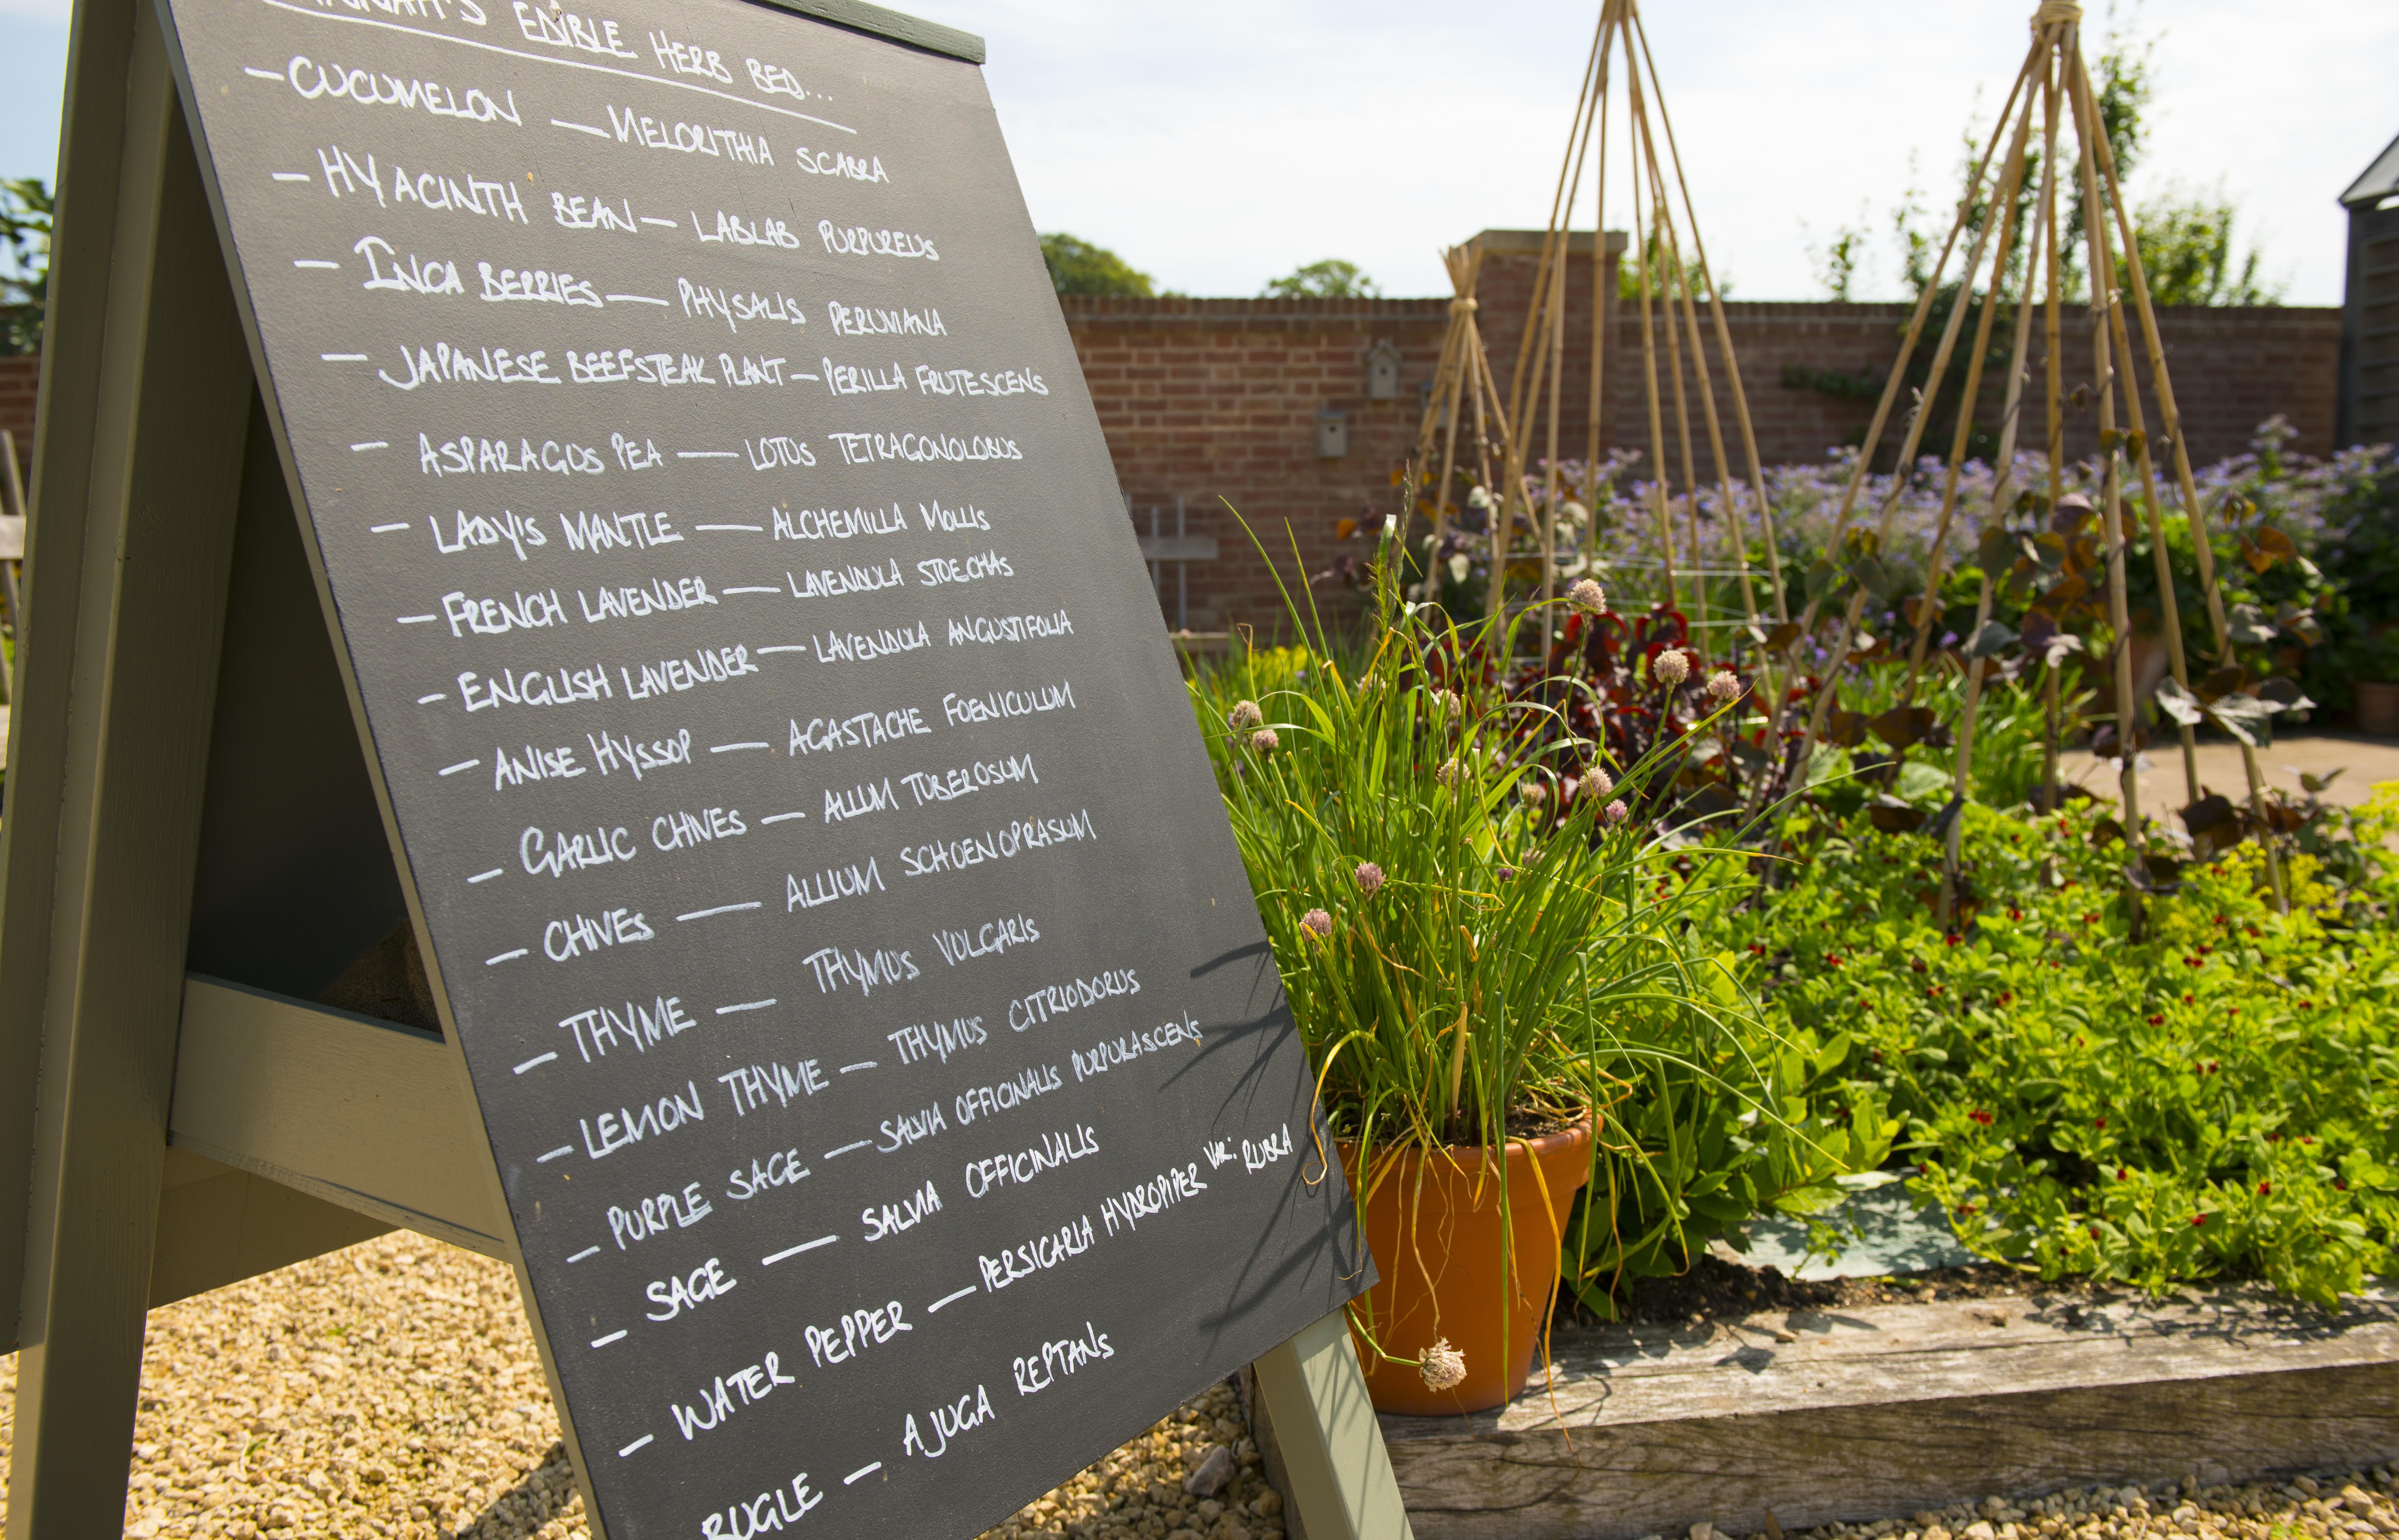 EDIBLE HERB BED...
- CUCUMELON — MELORITHIA SCABRA
- HYACINTH BEAN — LABLAB PURPUREUS
- INCA BERRIES — PHYSALIS PERUVIANA
- JAPANESE BEEFSTEAK PLANT — PERILLA FRUTESCENS
- ASPARAGUS PEA — LOTUS TETRAGONOLOBUS
- LADY'S MANTLE — ALCHEMILLA MOLLIS
- FRENCH LAVENDER — LAVENDULA STOECHAS
- ENGLISH LAVENDER — LAVENDULA ANGUSTIFOLIA
- ANISE HYSSOP — AGASTACHE FOENICULUM
- GARLIC CHIVES — ALLIUM TUBEROSUM
- CHIVES — ALLIUM SCHOENOPRASUM
- THYME — THYMUS VULGARIS
- LEMON THYME — THYMUS CITRIODORUS
- PURPLE SAGE — SALVIA OFFICINALIS PURPURASCENS
- SAGE — SALVIA OFFICINALIS
- WATER PEPPER — PERSICARIA HYDROPIPER VAR: RUBRA
- BUGLE — AJUGA REPTANS